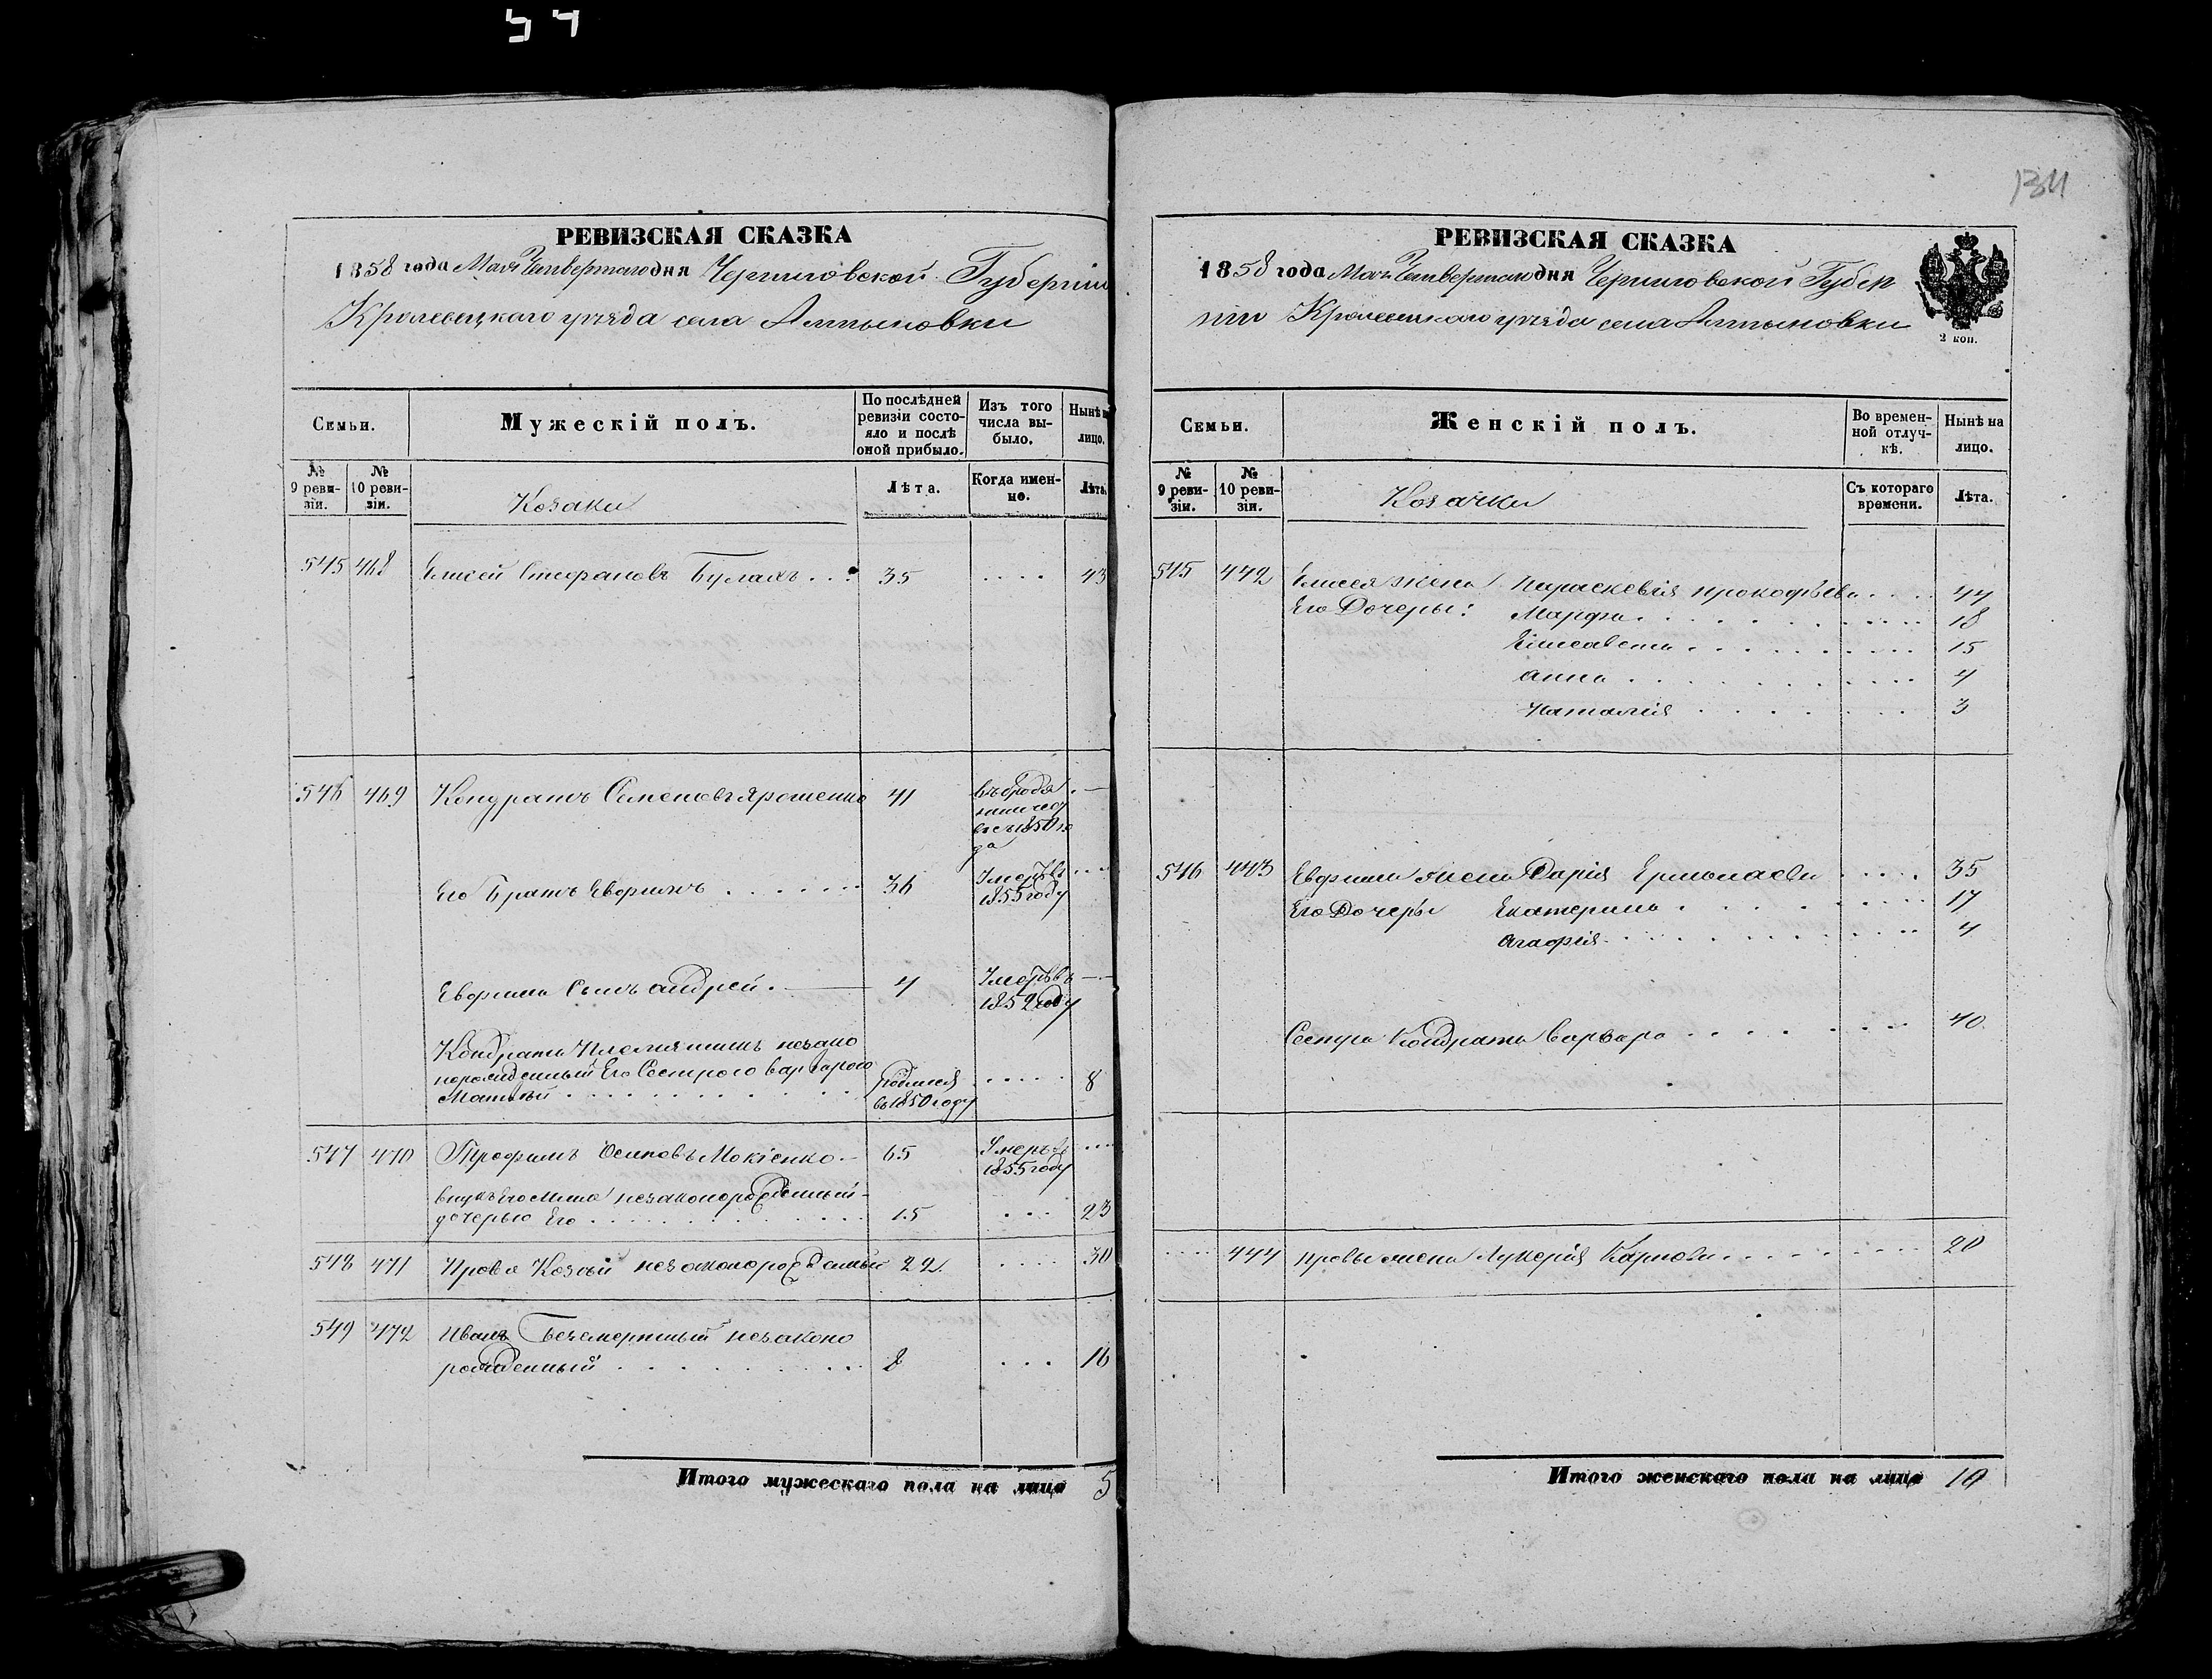 54
РЕВИЗСКАЯ СКАЗКА
1858 года Мая Четвертаго дня Черниговской Губерніи
Кролевецкаго уезда села Алтыновки
Семьи.
Мужескій полъ.
По послѣдней ревизіи состояло и послѣ оной прибыло.
Изъ того числа выбыло.
Нынѣ
лицо.
№ 9 ревизіи.
№ 10 ревизіи.
Козаки
Лѣта.
Когда именно.
Лѣта.
545 468 Елисей Стефановъ Булахъ . . . 35 . . . . 43
546 469 Кондратъ Семеновъ Ярошенко 41
1850 го
да
Его Братъ Евфимъ . . . . . . 36 Умеръ въ . . .
1855 году
Евфима Сынъ андрей. 4 Умеръ въ
1852 году
Кондрата Племянникъ незако
норожденный Его Сестрою варварою
Матвѣй . . . . . . . . . . родился въ 1850 году . . . . . 8
547 470 Трофимъ Осиповъ Мокіенко 65 Умеръ въ . . .
1855 году
внукъ Его незаконорожденный
дочерью Его . . . . . . . . . . 15 . . . 23
548 471 Козый незаконорожденный 22 . . . . 30
549 472 Иванъ Безсмертный незаконо
рожденный . . . . . . . . . 8 . . . 16
Итого мужескаго пола на лицо 5
134
РЕВИЗСКАЯ СКАЗКА
1858 года Мая Четвертаго дня Черниговской Губер
ніи Кролевецкаго уезда села Алтыновки
2 коп.
Семьи.
Женскій полъ.
Во временной отлучкѣ.
Нынѣ на лицо.
№ 9 ревизіи.
№ 10 ревизіи.
Козачки
Съ котораго времени.
Лѣта.
545 442 Елисея жена Параскевія прокофьева . . . . 44
Его Дочеры: Марфа . . . . . . . . . . 18
Елисавета . . . . . . . . . 15
анна . . . . . . . . . . 4
Наталія . . . . . . . . 3
546 443 Евфима жена Дарія Ермолаева . . . . . 35
Его Дочеры Екатерина . . . . . . . . . 17
агафія . . . . . . . . . . 4
Сестра Кондрата Варвара . . . . . . . 40
. . . . 444 жена Лукерія Карпова . . . . . . . . 20
Итого женскаго пола на лицо 10